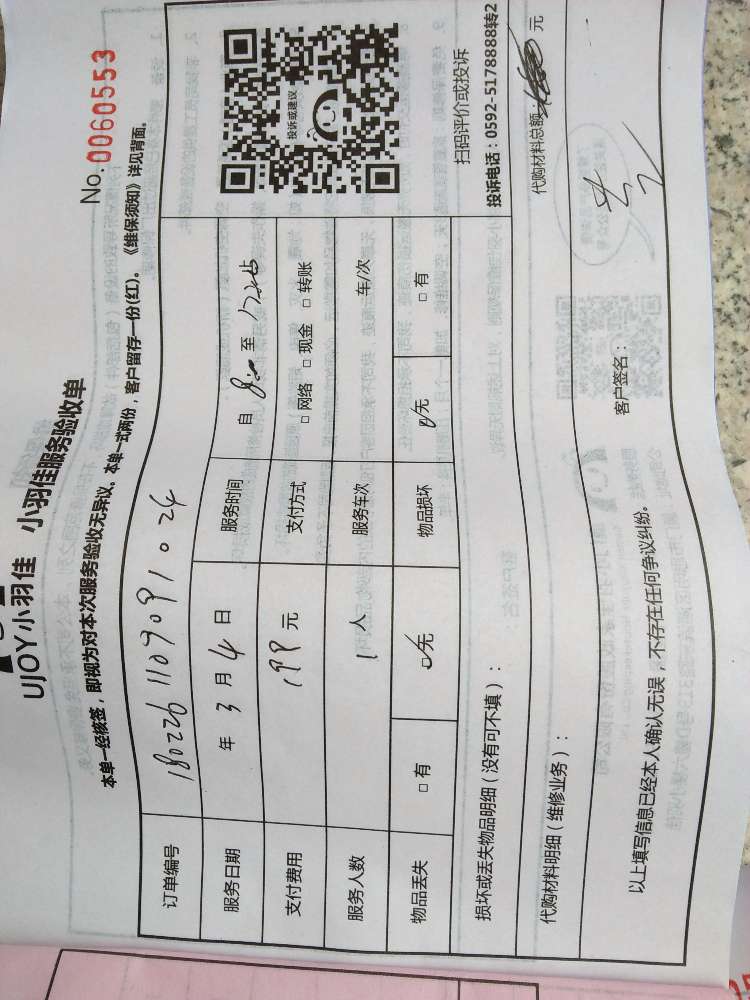 UJOY小羽佳 小羽佳服务验收单
No. 0060553
本单一经核签，即视为对本次服务验收无异议。本单一式两份，客户留存一份(红)。《维保须知》详见背面。
订单编号 1802261109091024
服务日期 年 3 月 4 日 服务时间 自 8:00 至
支付费用 199 元 支付方式 □ 网络 □ 现金 □ 转账
服务人数 1 人 服务车次 车/次
物品丢失 □ 有 □无 物品损坏 □无 □ 有
投诉或建议
扫码评价或投诉
投诉电话：0592-5178888转2
损坏或丢失物品明细（没有可不填）：
代购材料明细（维修业务）：
代购材料总额 元
以上填写信息已经本人确认无误，不存在任何争议纠纷。
客户签名：